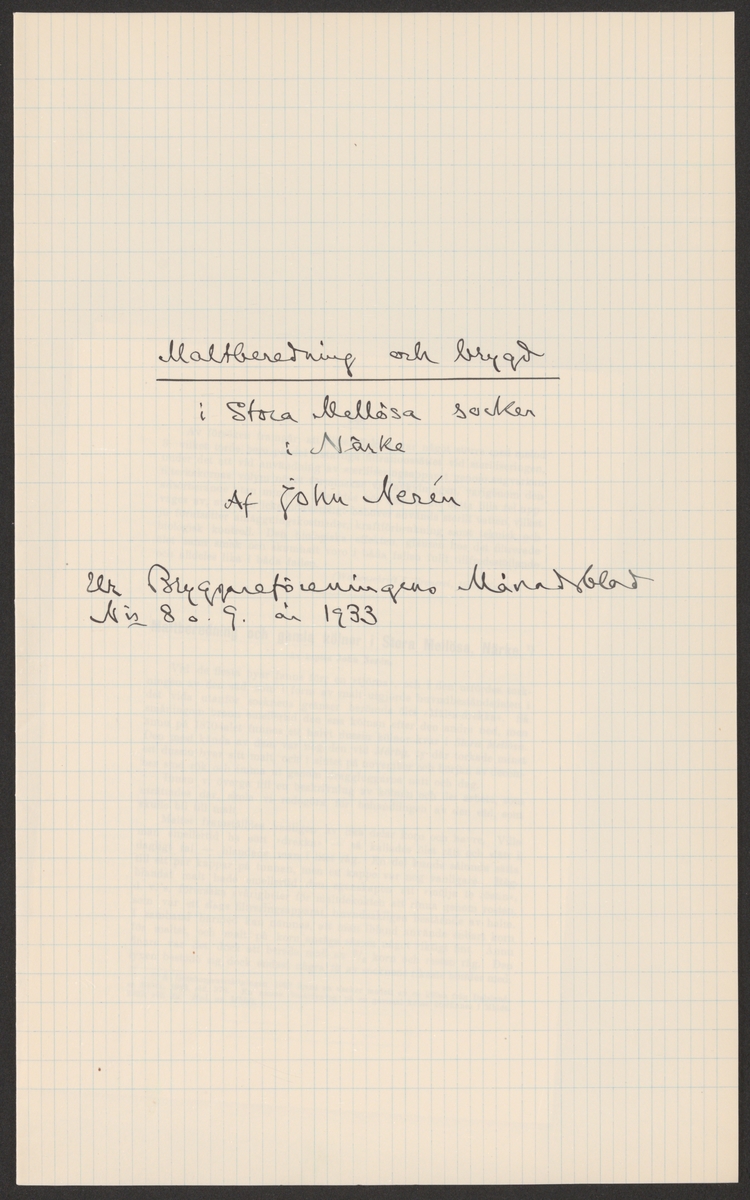 Maltberedning och brygd
i Stora Mellösa socken
i Närke
Af John Nerén
Ur Bryggareföreningens Månadsblad
N:is 8 o. 9. år 1933